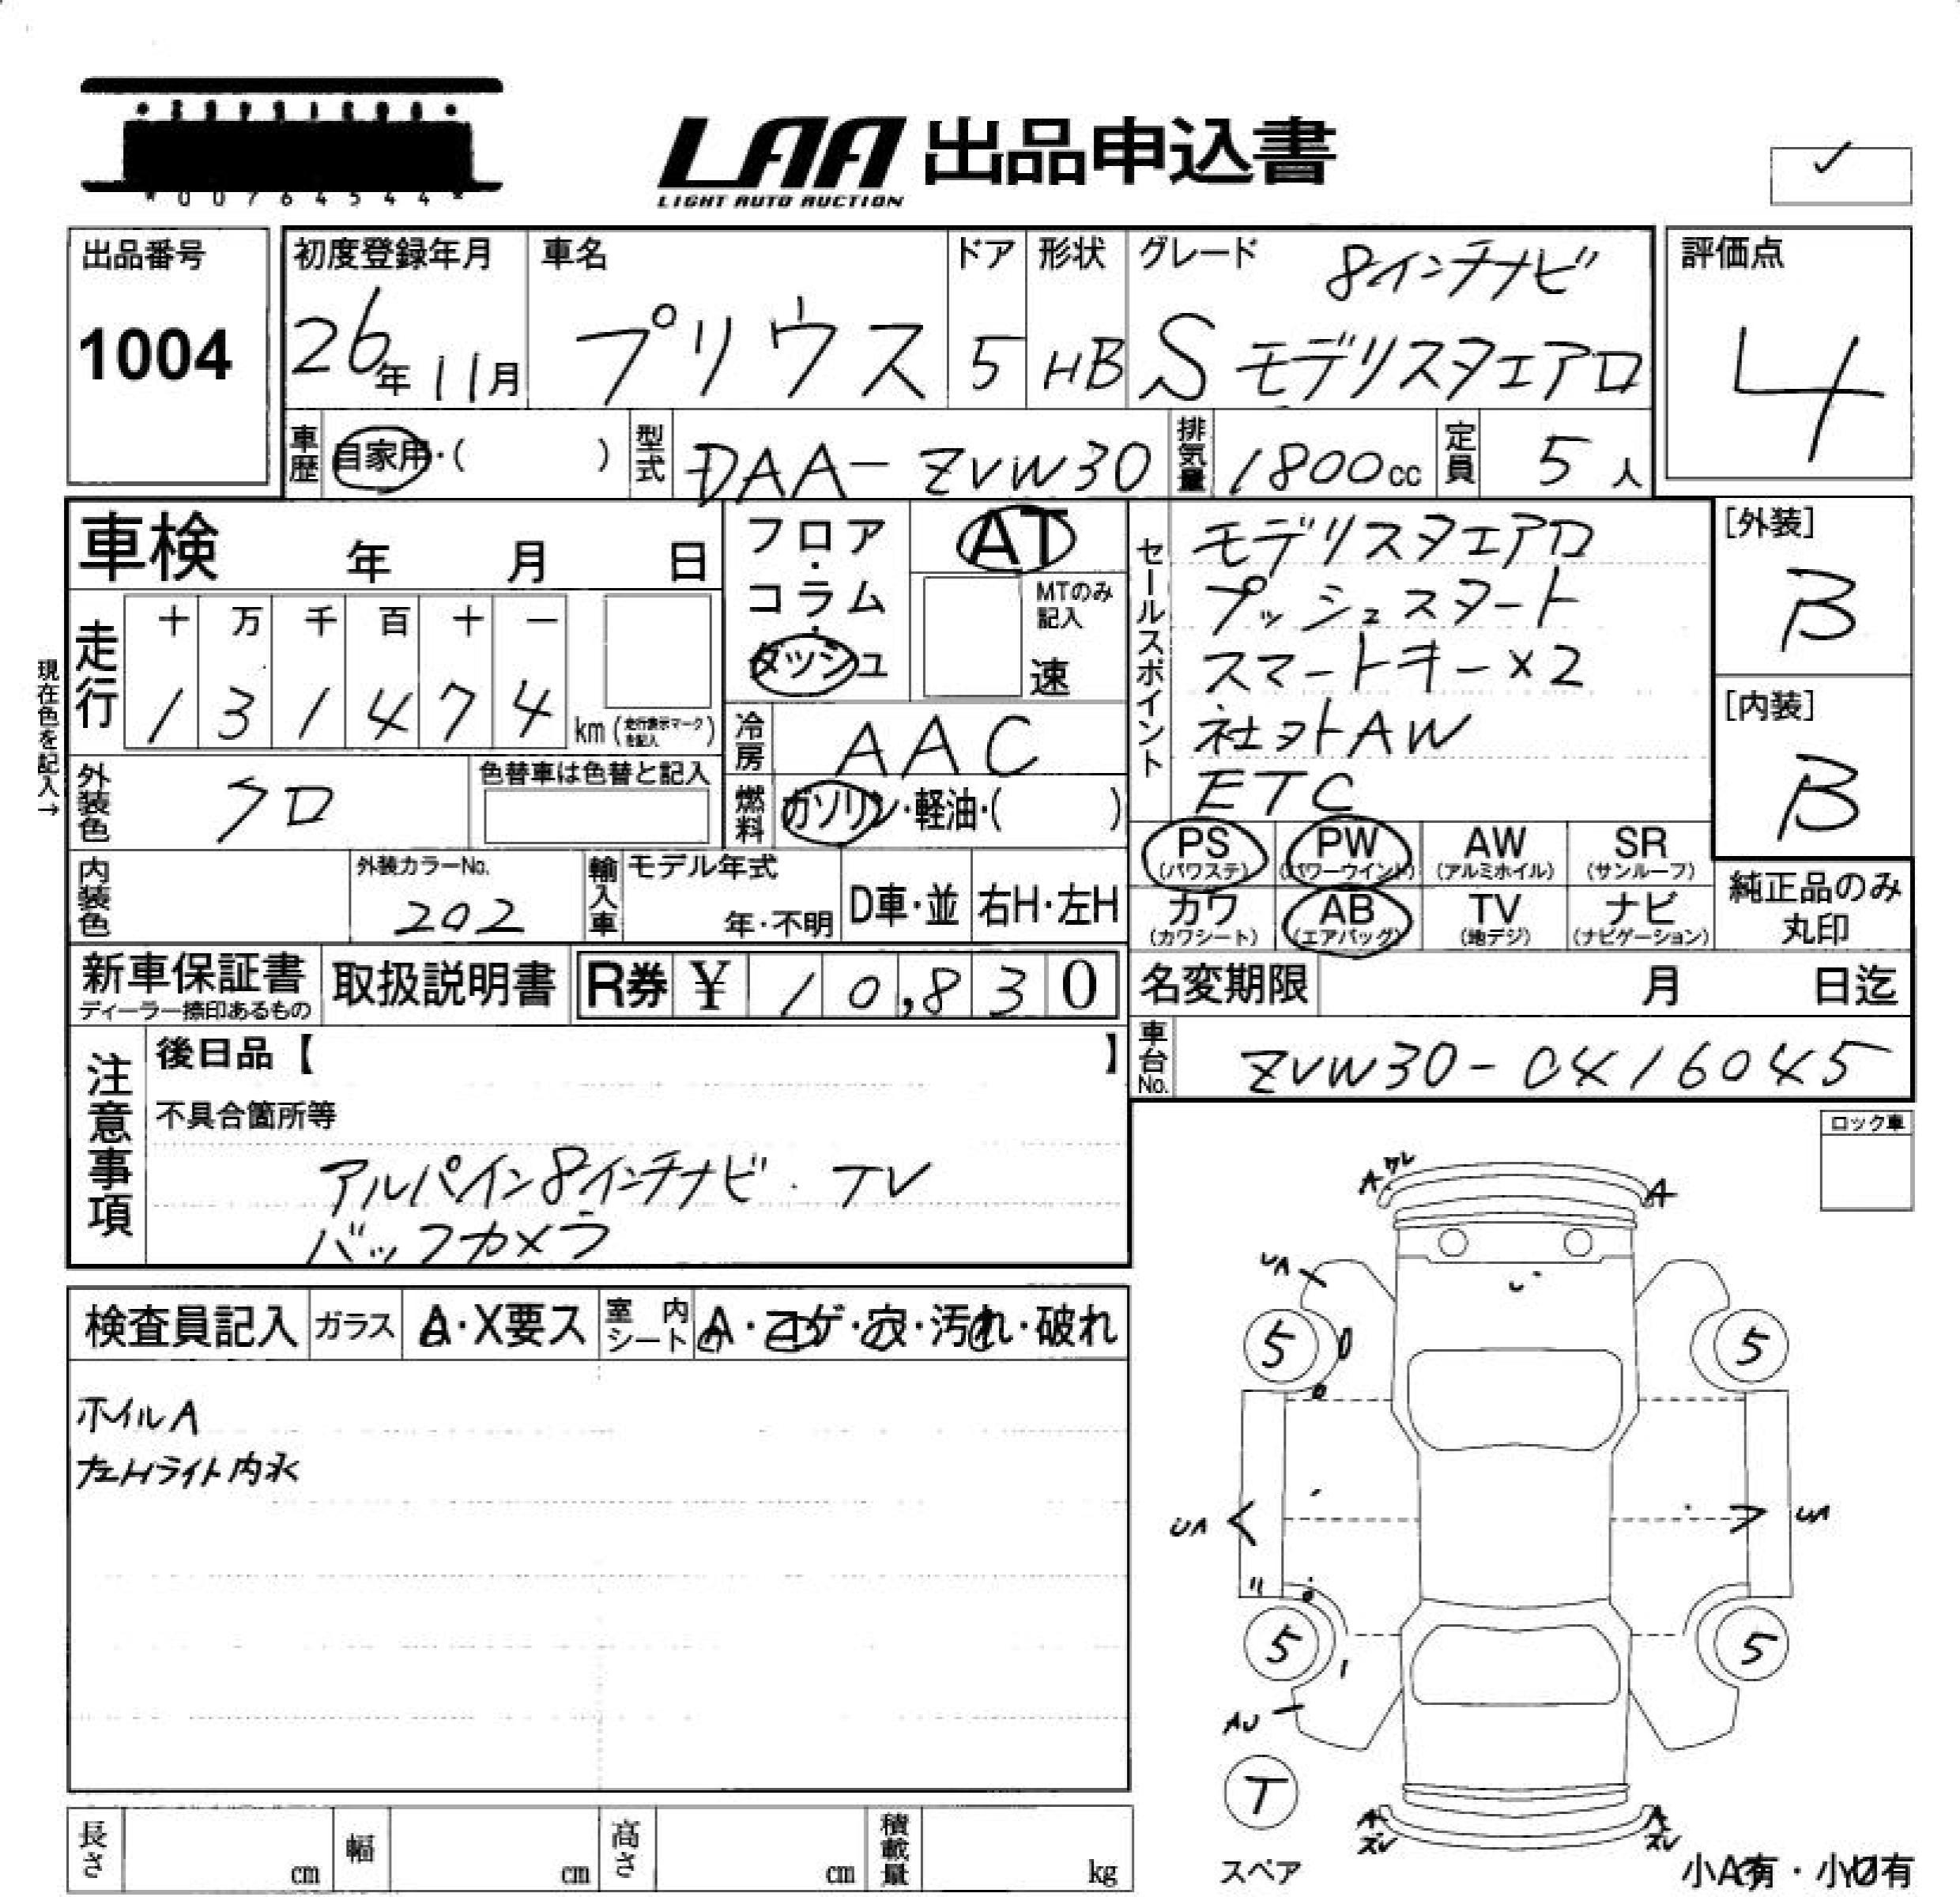 *00764544*
LAA 出品申込書
LIGHT AUTO AUCTION
✓
出品番号
1004
初度登録年月
26年11月
車名
プリウス
ドア
5
形状
HB
グレード
8インチナビ
S モデリスタエアロ
評価点
4
車歴
自家用・( )
型式
DAA-ZVW30
排気量
1800cc
定員
5人
車検 年 月 日
フロア・コラム・ダッシュ
AT
MTのみ記入
速
セールスポイント
モデリスタエアロ
プッシュスタート
スマートキー×2
社外AW
ETC
[外装]
B
[内装]
B
現在色を記入→
走行
十 万 千 百 十 一
1 3 1 4 7 4 km (走行表示マークを記入)
冷房
AAC
外装色
クロ
色替車は色替と記入
燃料
ガソリン・軽油・( )
PS (パワステ)
PW (パワーウインド)
AW (アルミホイル)
SR (サンルーフ)
カワ (カワシート)
AB (エアバッグ)
TV (地デジ)
ナビ (ナビゲーション)
純正品のみ
丸印
内装色
外装カラーNo.
202
輸入車
モデル年式
年・不明
D車・並
右H・左H
新車保証書
ディーラー捺印あるもの
取扱説明書
R券 ¥ 10,830
名変期限 月 日迄
車台No.
ZVW30-0416045
注意事項
後日品【 】
不具合箇所等
アルパイン8インチナビ.TV
バックカメラ
ロック車
検査員記入
ガラス
A・X要ス
室内シート
A・コゲ・穴・汚れ・破れ
ホイルA
左Hライト内水
A
A
UA
5
5
UA
UA
5
5
AU
T
スペア
A
ズレ
A
ズレ
小A有・小U有
長さ cm
幅 cm
高さ cm
積載量 kg